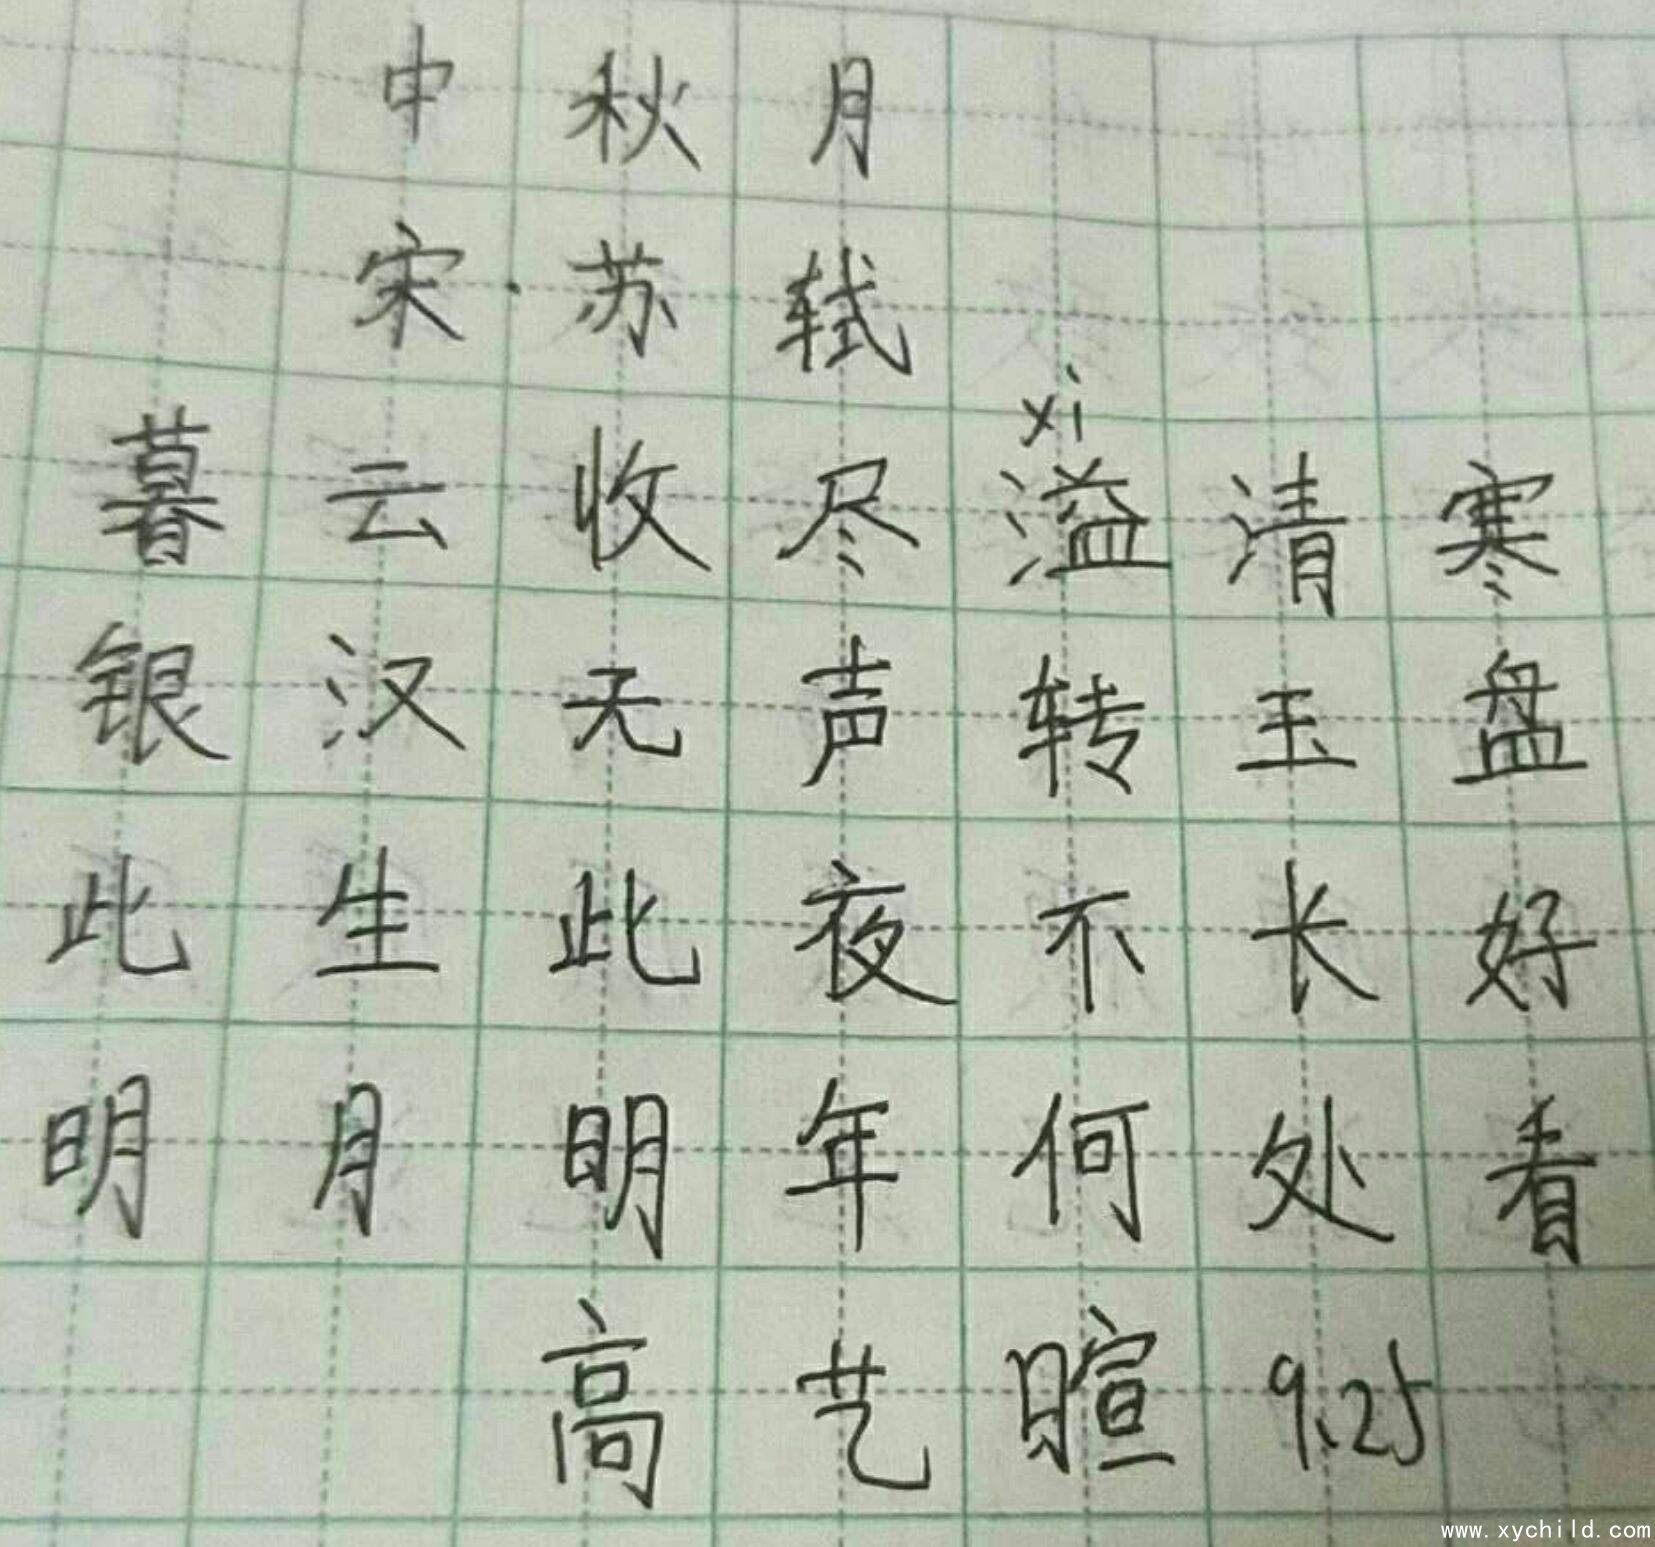 中秋月
宋·苏轼
xi
暮云收尽溢清寒
银汉无声转玉盘
此生此夜不长好
明月明年何处看
高艺暄 9.25
www.xychild.com